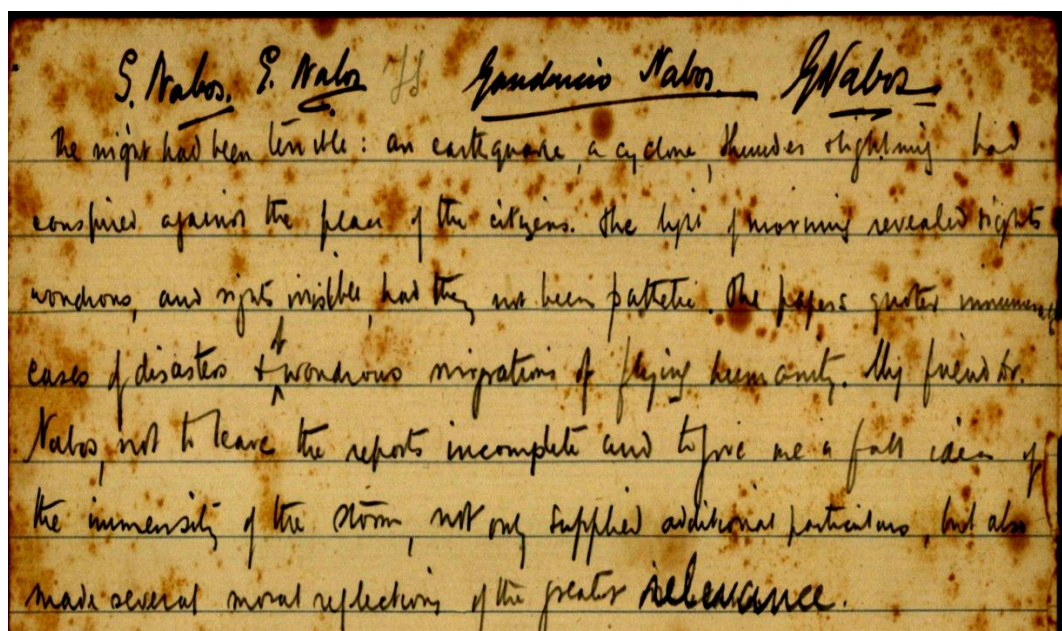 G. Nabos. G. Nabos Gaudencio Nabos. GNabos
The night had been terrible: an earthquake, a cyclone, thunder & lightning had
conspired against the peace of the citizens. The light of morning revealed sights
wondrous, and sights risible, had they not been pathetic. The papers quoted
cases of disasters & of wondrous migrations of flying humanity. My friend Dr.
Nabos, not to leave the reports incomplete and to give me a full idea of
the immensity of the storm, not only supplied additional particulars, but also
made several moral reflections of the greatest